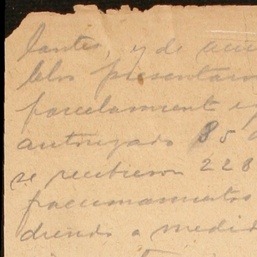 lantes, y de acue
blos presentaron
parcelamiento ej
autorizado 85 d
se recibieron 228
fraccionamientos
diendo a medid